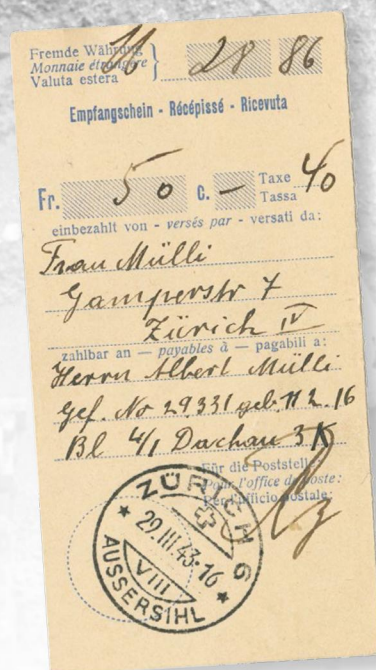 Fremde Währung
Monnaie étrangère
Valuta estera } 28 86
Empfangschein - Récépissé - Ricevuta
Fr. 50 C. – Taxe Tassa 40
einbezahlt von - versés par - versati da:
Frau Mülli
Gamperstr 7
Zürich IV
zahlbar an — payables à — pagabili a:
Herrn Albert Mülli
Gef. No 29,331 geb. 11 2. 16
Bl 4/1 Dachau 3 K
Für die Poststelle:
Pour l'office de poste:
Per l'ufficio postale:
ZÜRICH 6
29.III.43-16
VIII
AUSSERSIHL